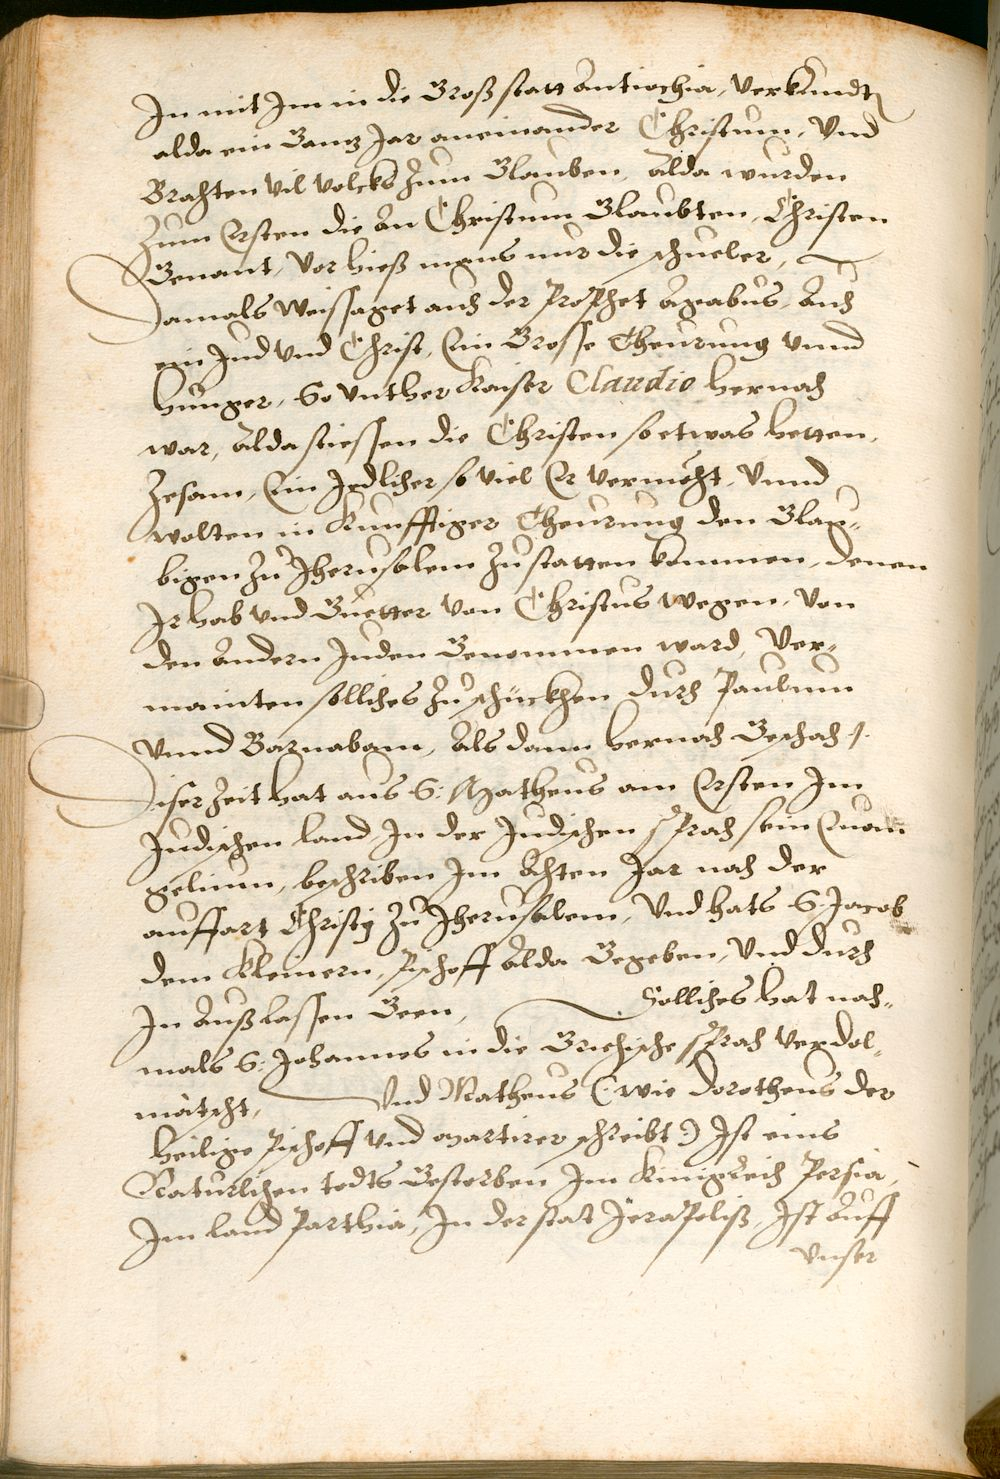 In mit Im in die Groß statt Antiochia, verkundt
alda ein Gantz Jar aneinander Christum, Vnd
Brachten vil volcks zum Glauben, Alda wurden
Zum Ersten die An Christum Glaubten, Christen
Genant, vor hieß mans nur die schueler,
Damals Weissaget auch der Prophet Agabus, Auch
ein Jud vnd Christ, Ein Grosse Theurung vnnd
hunger, So vnther Kaiser Claudio hernach
war, Alda stiessen die Christen so etwas hetten,
Zesam, Ein Jedlicher so viel Er vermöcht, Vnnd
wolten in Kunfftiger Theurung den Glau-
bigen zu Jherusalem zustatten kommen, denen
Ir hab vnd Guetter von Christus wegen, von
den Andern Juden Genommen ward, Ver-
mainten solliches zu schückhen durch Paulum
vnnd Barnabam, Als dann hernach Geschach /.
Diser Zeit hat aus S: Matheus am Ersten Im
Judischen land, In der Judischen sprach sein Euan
gelium, beschriben Im Achten Jar nach der
auffart Christy zu Jherusalem, Vnd hats S. Jacob
dem Kleinern, Pischoff Alda Gegeben, Vnd durch
In Außlassen Geen, Solliches hat nach-
mals S: Johannes in die Griechische sprach verdol-
mätscht, Vnd Matheus (: wie Dorotheus der
heilige Pischoff vnd Martirer schreibt :) Ist eins
Naturlichen todts Gestorben Im Kinigreich Persia,
Im land Parthia, In der stat Jerapoliß, Ist Auff
vnser